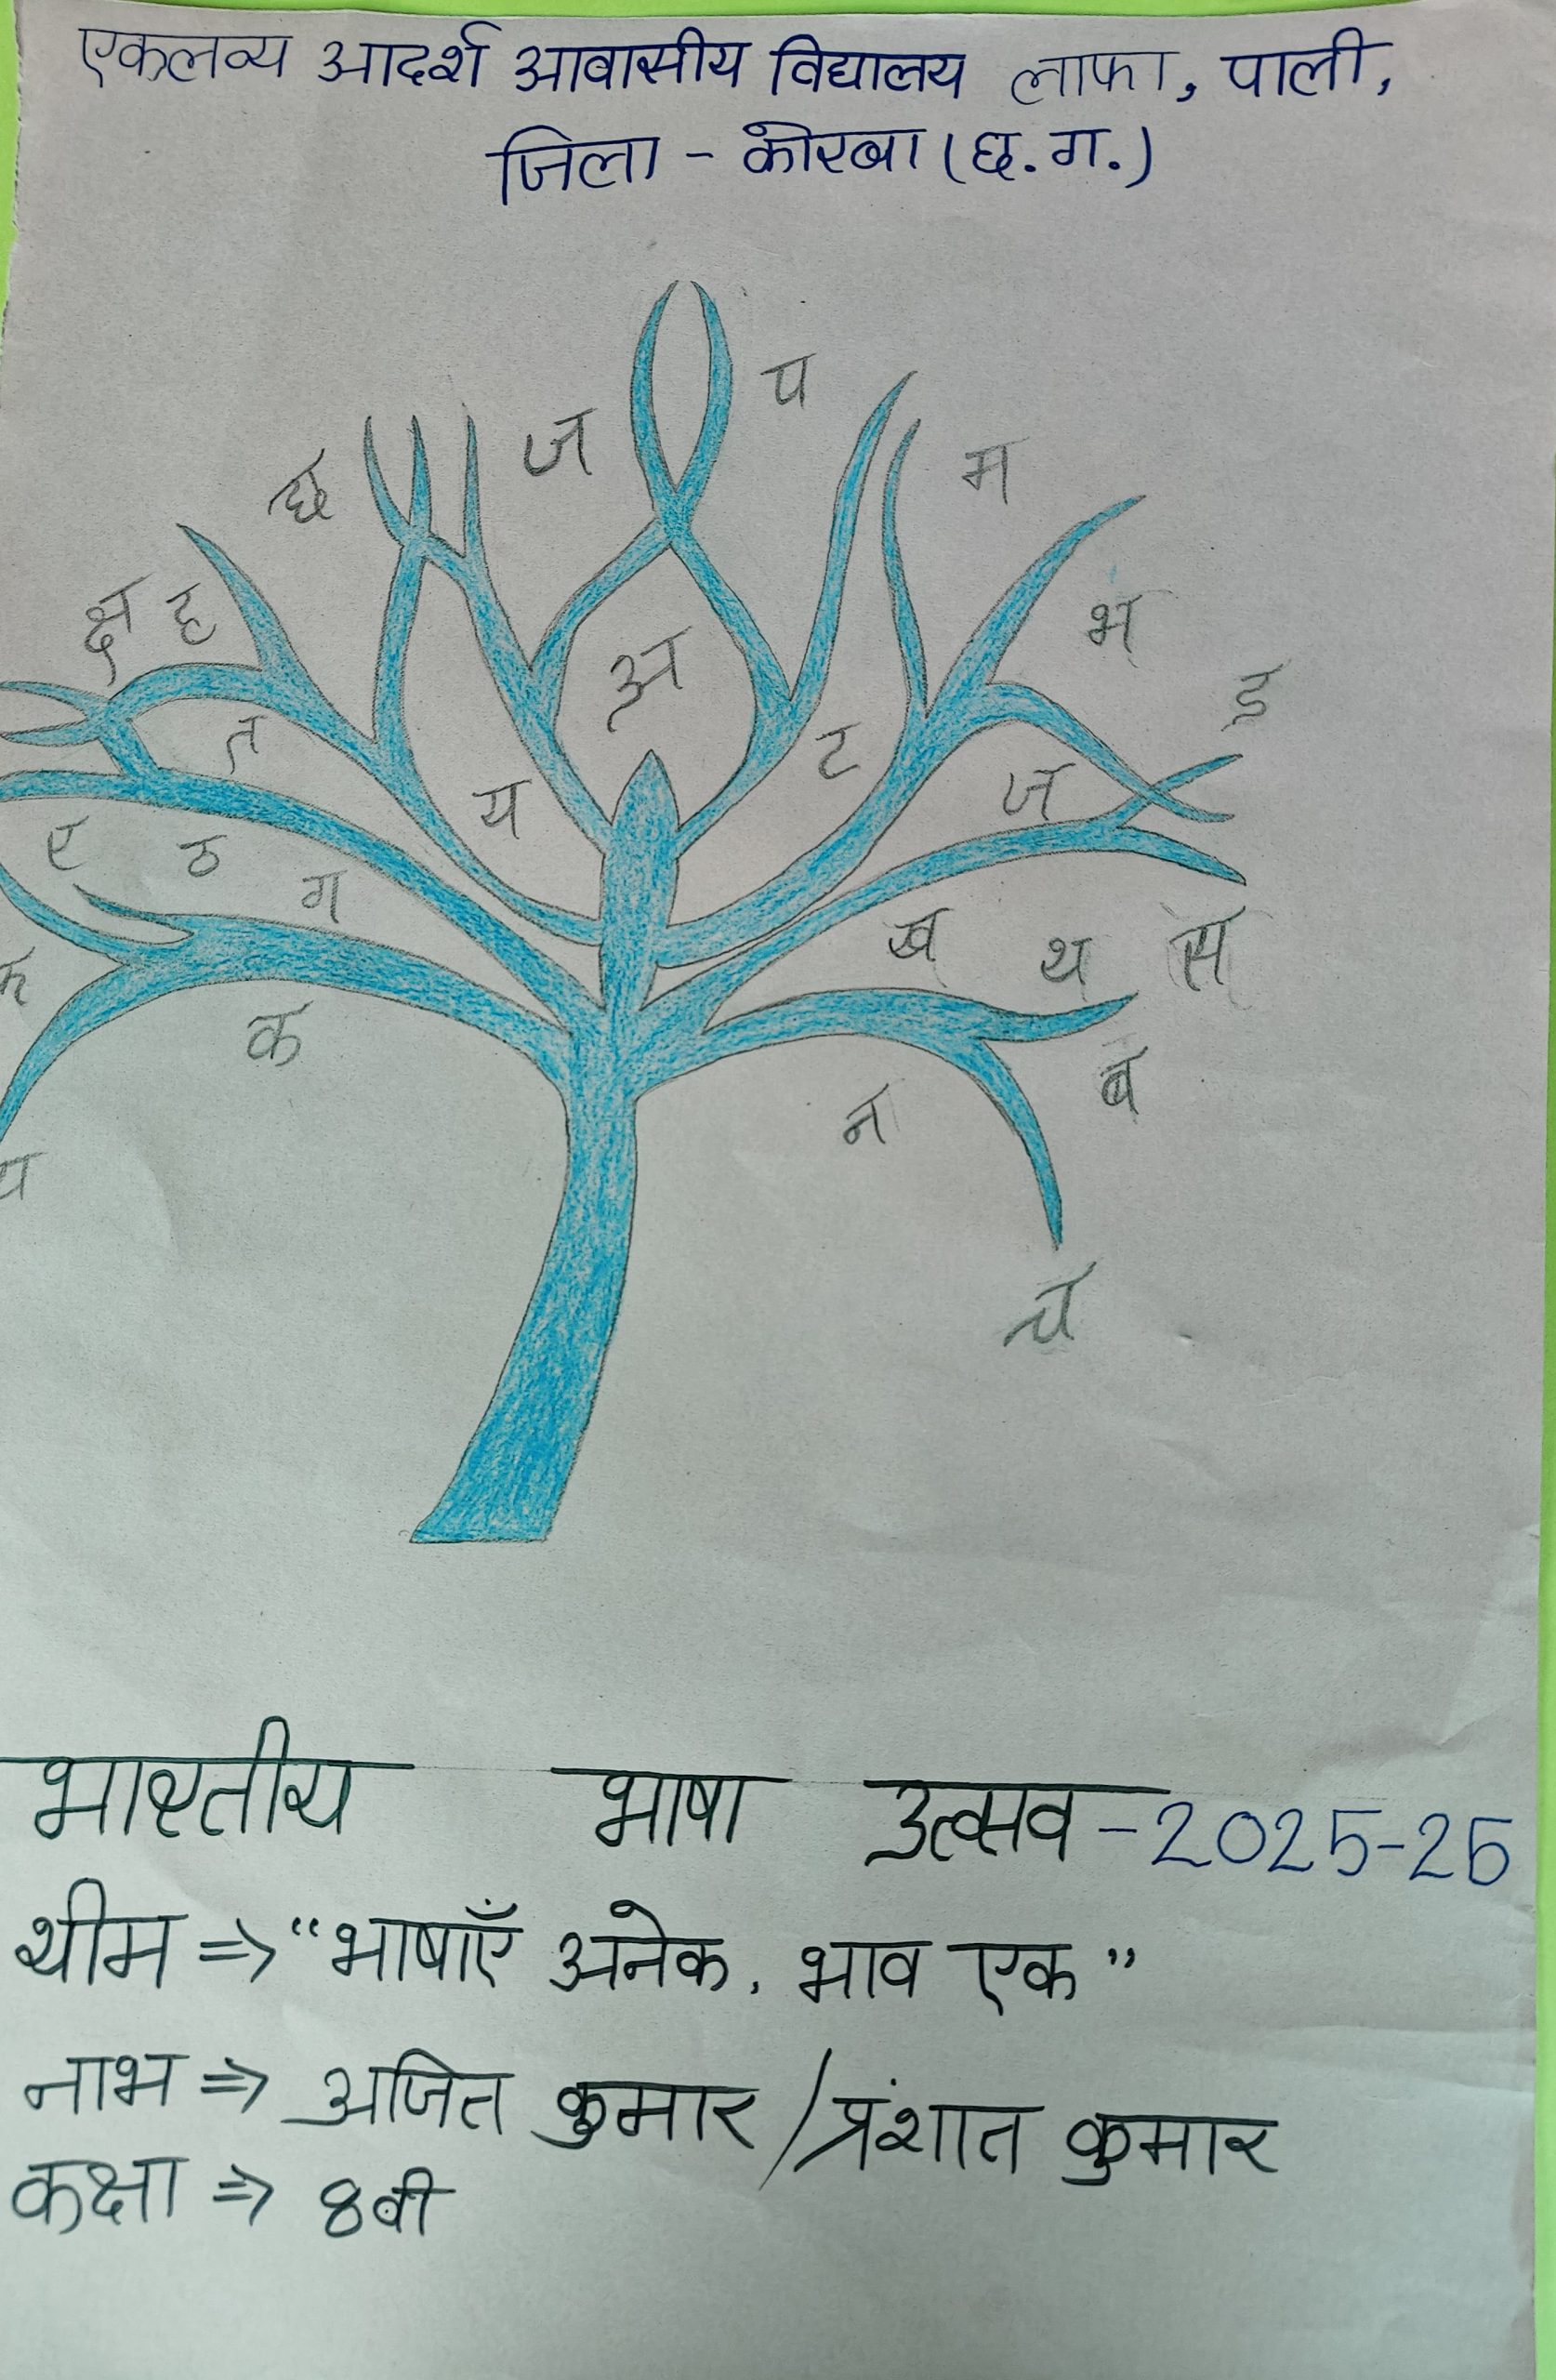 एकलव्य आदर्श आवासीय विद्यालय लाफा, पाली,
जिला - कोरबा (छ. ग.)
प
छ ज म
क्ष ह अ भ
ड
त य ट ज
ए ठ ग
ख थ स
क
ब
न
च
भारतीय भाषा उत्सव - 2025-26
थीम ⇒ "भाषाएँ अनेक, भाव एक"
नाम ⇒ अजित कुमार / प्रंशात कुमार
कक्षा ⇒ 8वी